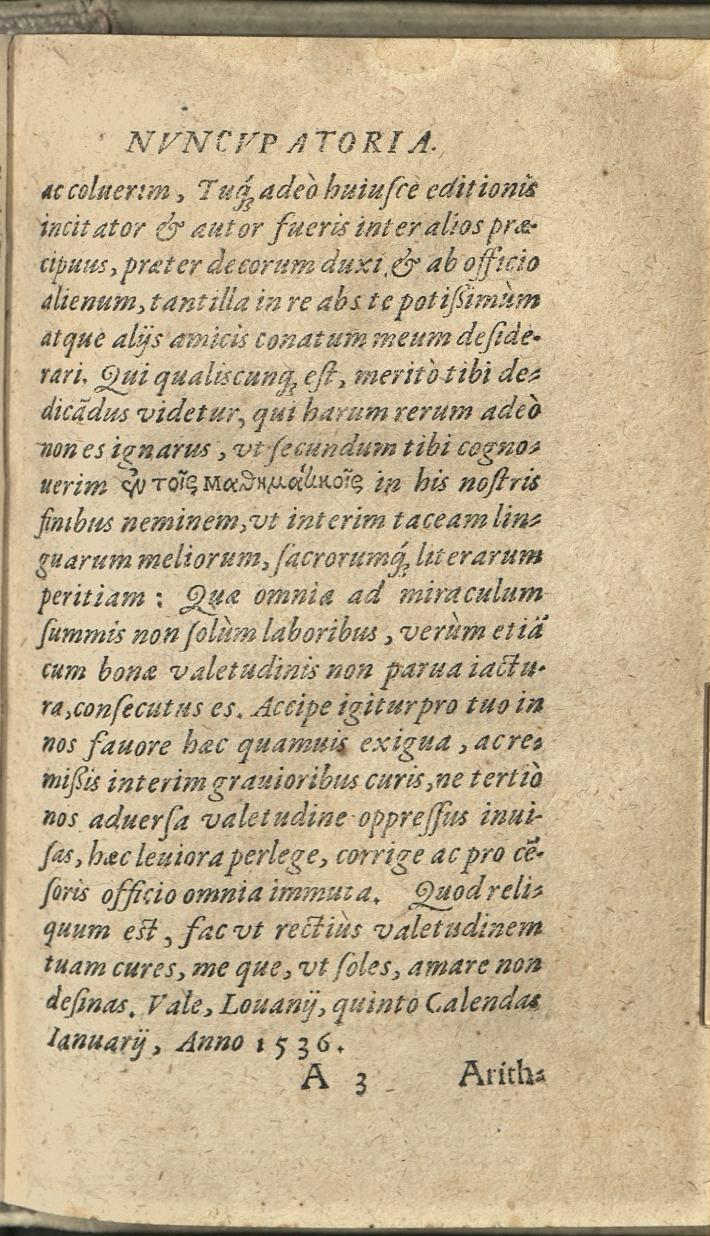 NVNCVPATORIA.
ac coluerim, Tuq́ꝫ adeò huiusce editionis
incitator & autor fueris inter alios præ-
cipuus, præter decorum duxi, & ab officio
alienum, tantilla in re abs te potißimùm
atque alijs amicis conatum meum deside-
rari. Qui qualiscunqꝫ est, meritò tibi de-
dicādus videtur, qui harum rerum adeò
non es ignarus, vt secundum tibi cogno-
uerim ἐν τοῖς μαθηματικοῖς in his nostris
finibus neminem, vt interim taceam lin-
guarum meliorum, sacrorumq́ꝫ literarum
peritiam: Quæ omnia ad miraculum
summis non solùm laboribus, verùm etiā
cum bonæ valetudinis non parua iactu-
ra, consecutus es. Accipe igitur pro tuo in
nos fauore hæc quamuis exigua, ac re-
mißis interim grauioribus curis, ne tertiò
nos aduersa valetudine oppressus inui-
sas, hæc leuiora perlege, corrige ac pro cē-
soris officio omnia immuta. Quod reli-
quum est, fac vt rectiùs valetudinem
tuam cures, me que, vt soles, amare non
desinas. Vale, Louanij, quinto Calendas
Ianuarij, Anno 1536.
A 3 Arith-